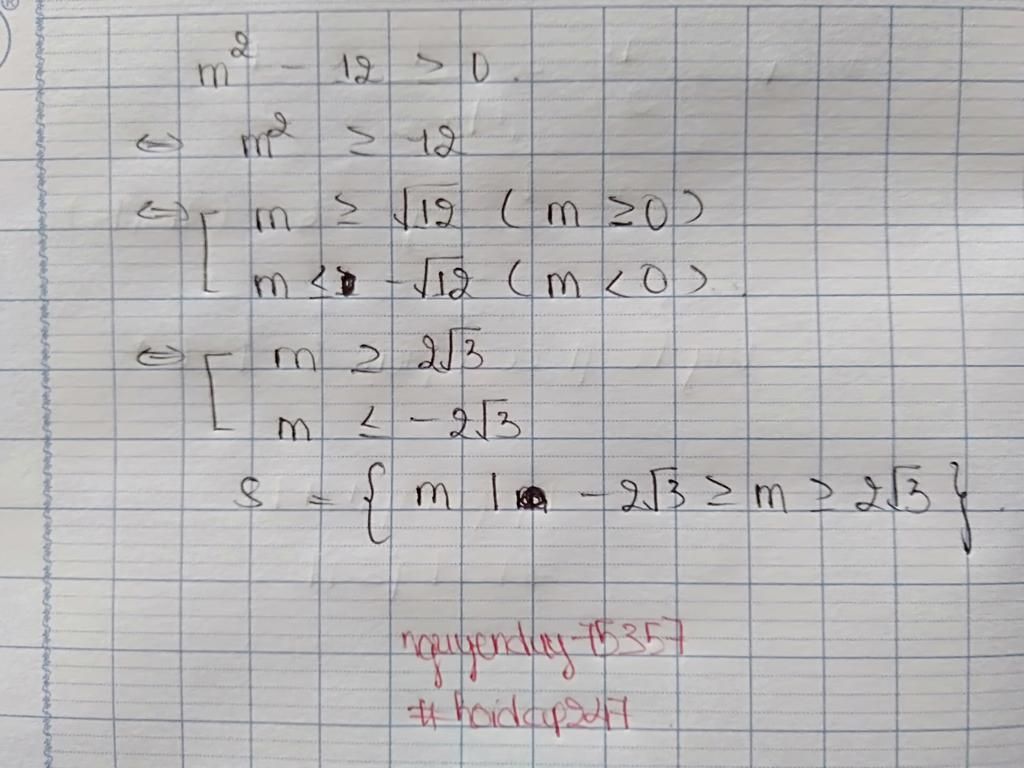 m² - 12 > 0.
⇔ m² ≥ 12
⇔ [ m ≥ √12 ( m ≥ 0 )
m ≤ -√12 ( m < 0 ).
⇔ [ m ≥ 2√3
m ≤ -2√3
S = { m | -2√3 ≥ m ≥ 2√3 }.
nguyenduy75357
#hoidap247